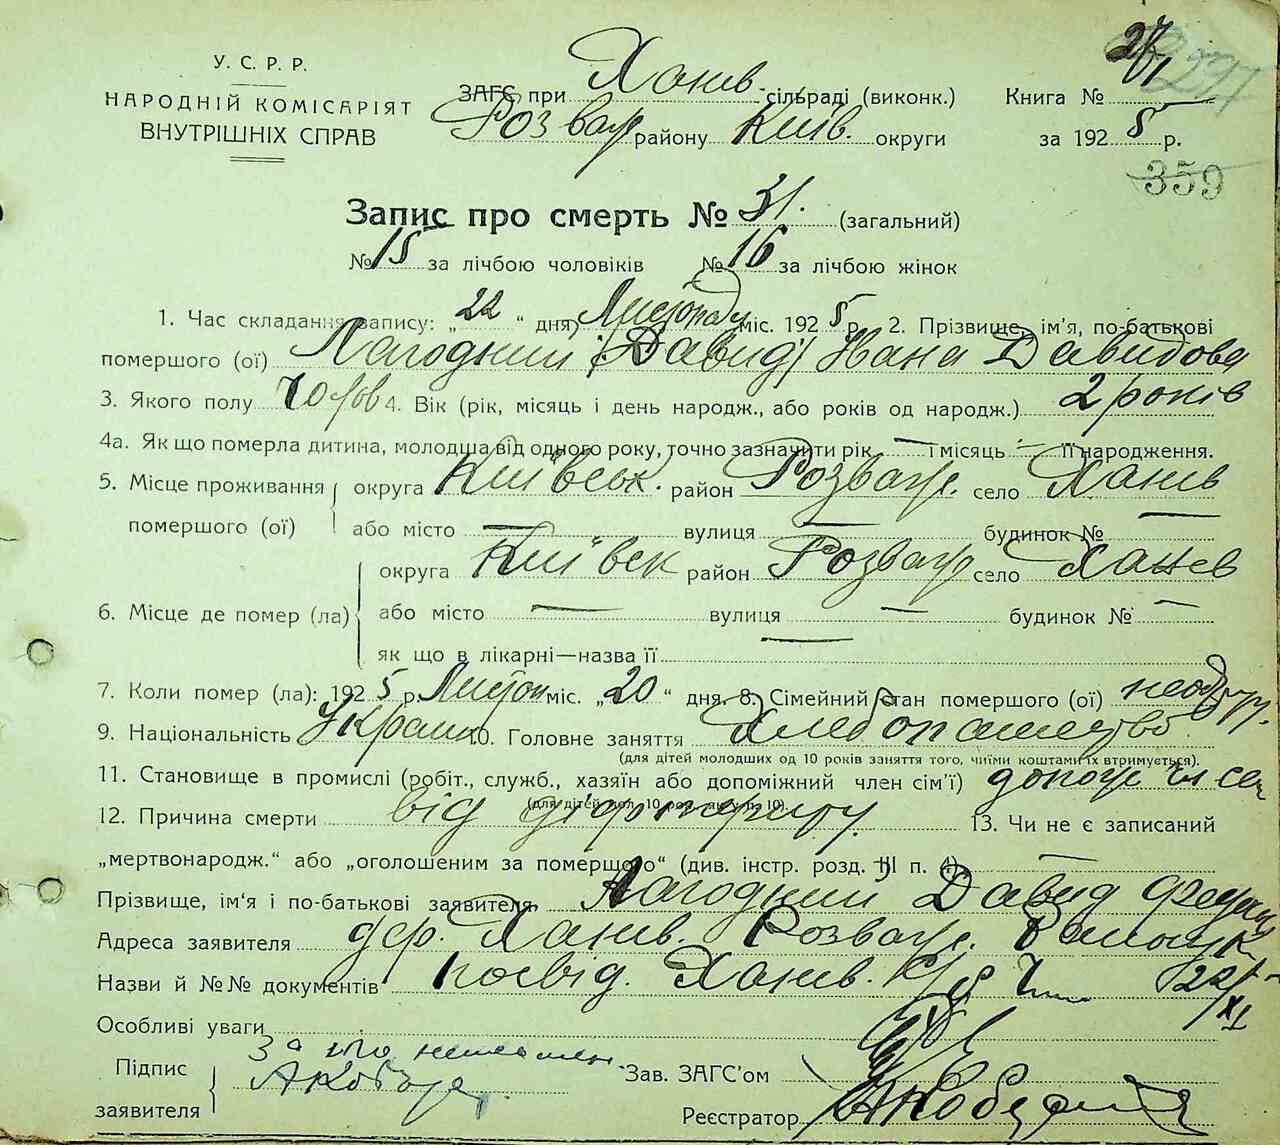 У. С. Р. Р.
НАРОДНІЙ КОМІСАРІЯТ
ВНУТРІШНІХ СПРАВ
ЗАГС при Ханів. сільраді (виконк.)
Розваж району Київ. округи
Книга №
за 1925 р.
359
Запис про смерть № 31. (загальний)
№ 15 за лічбою чоловіків № 16 за лічбою жінок
1. Час складання запису: „22“ дня Листопаду міс. 1925 р. 2. Прізвище, ім’я, по-батькові
помершого (ої) Нагодний (Давид) Івана Давидова
3. Якого полу чолов 4. Вік (рік, місяць і день народж., або років од народж.) 2 років
4а. Як що померла дитина, молодша від одного року, точно зазначити рік — і місяць — її народження.
5. Місце проживання помершого (ої) округа Київськ. район Розваж. село Ханів
або місто — вулиця — будинок № —
6. Місце де помер (ла) округа Київск район Розваж село Ханев
або місто — вулиця — будинок № —
як що в лікарні—назва її —
7. Коли помер (ла): 1925 р. Листоп міс. „20“ дня. 8. Сімейний стан помершого (ої)
9. Національність Україн. 10. Головне заняття Хлебопашество
(для дітей молодших од 10 років заняття того, чиїми коштами їх втримується).
11. Становище в промислі (робіт., служб., хазяїн або допоміжний член сім’ї) допом чл сем
12. Причина смерти від діфтериту 13. Чи не є записаний
„мертвонародж.“ або „оголошеним за помершого“ (див. інстр. розд. III п. 4) —
Прізвище, ім’я і по-батькові заявителя Нагодний Давид
Адреса заявителя дер. Ханів. Розваж.
Назви й №№ документів посвід. Ханів. С/р 22/XI
Особливі уваги
Підпис заявителя За його неписьмен.
Зав. ЗАГС’ом
Реєстратор